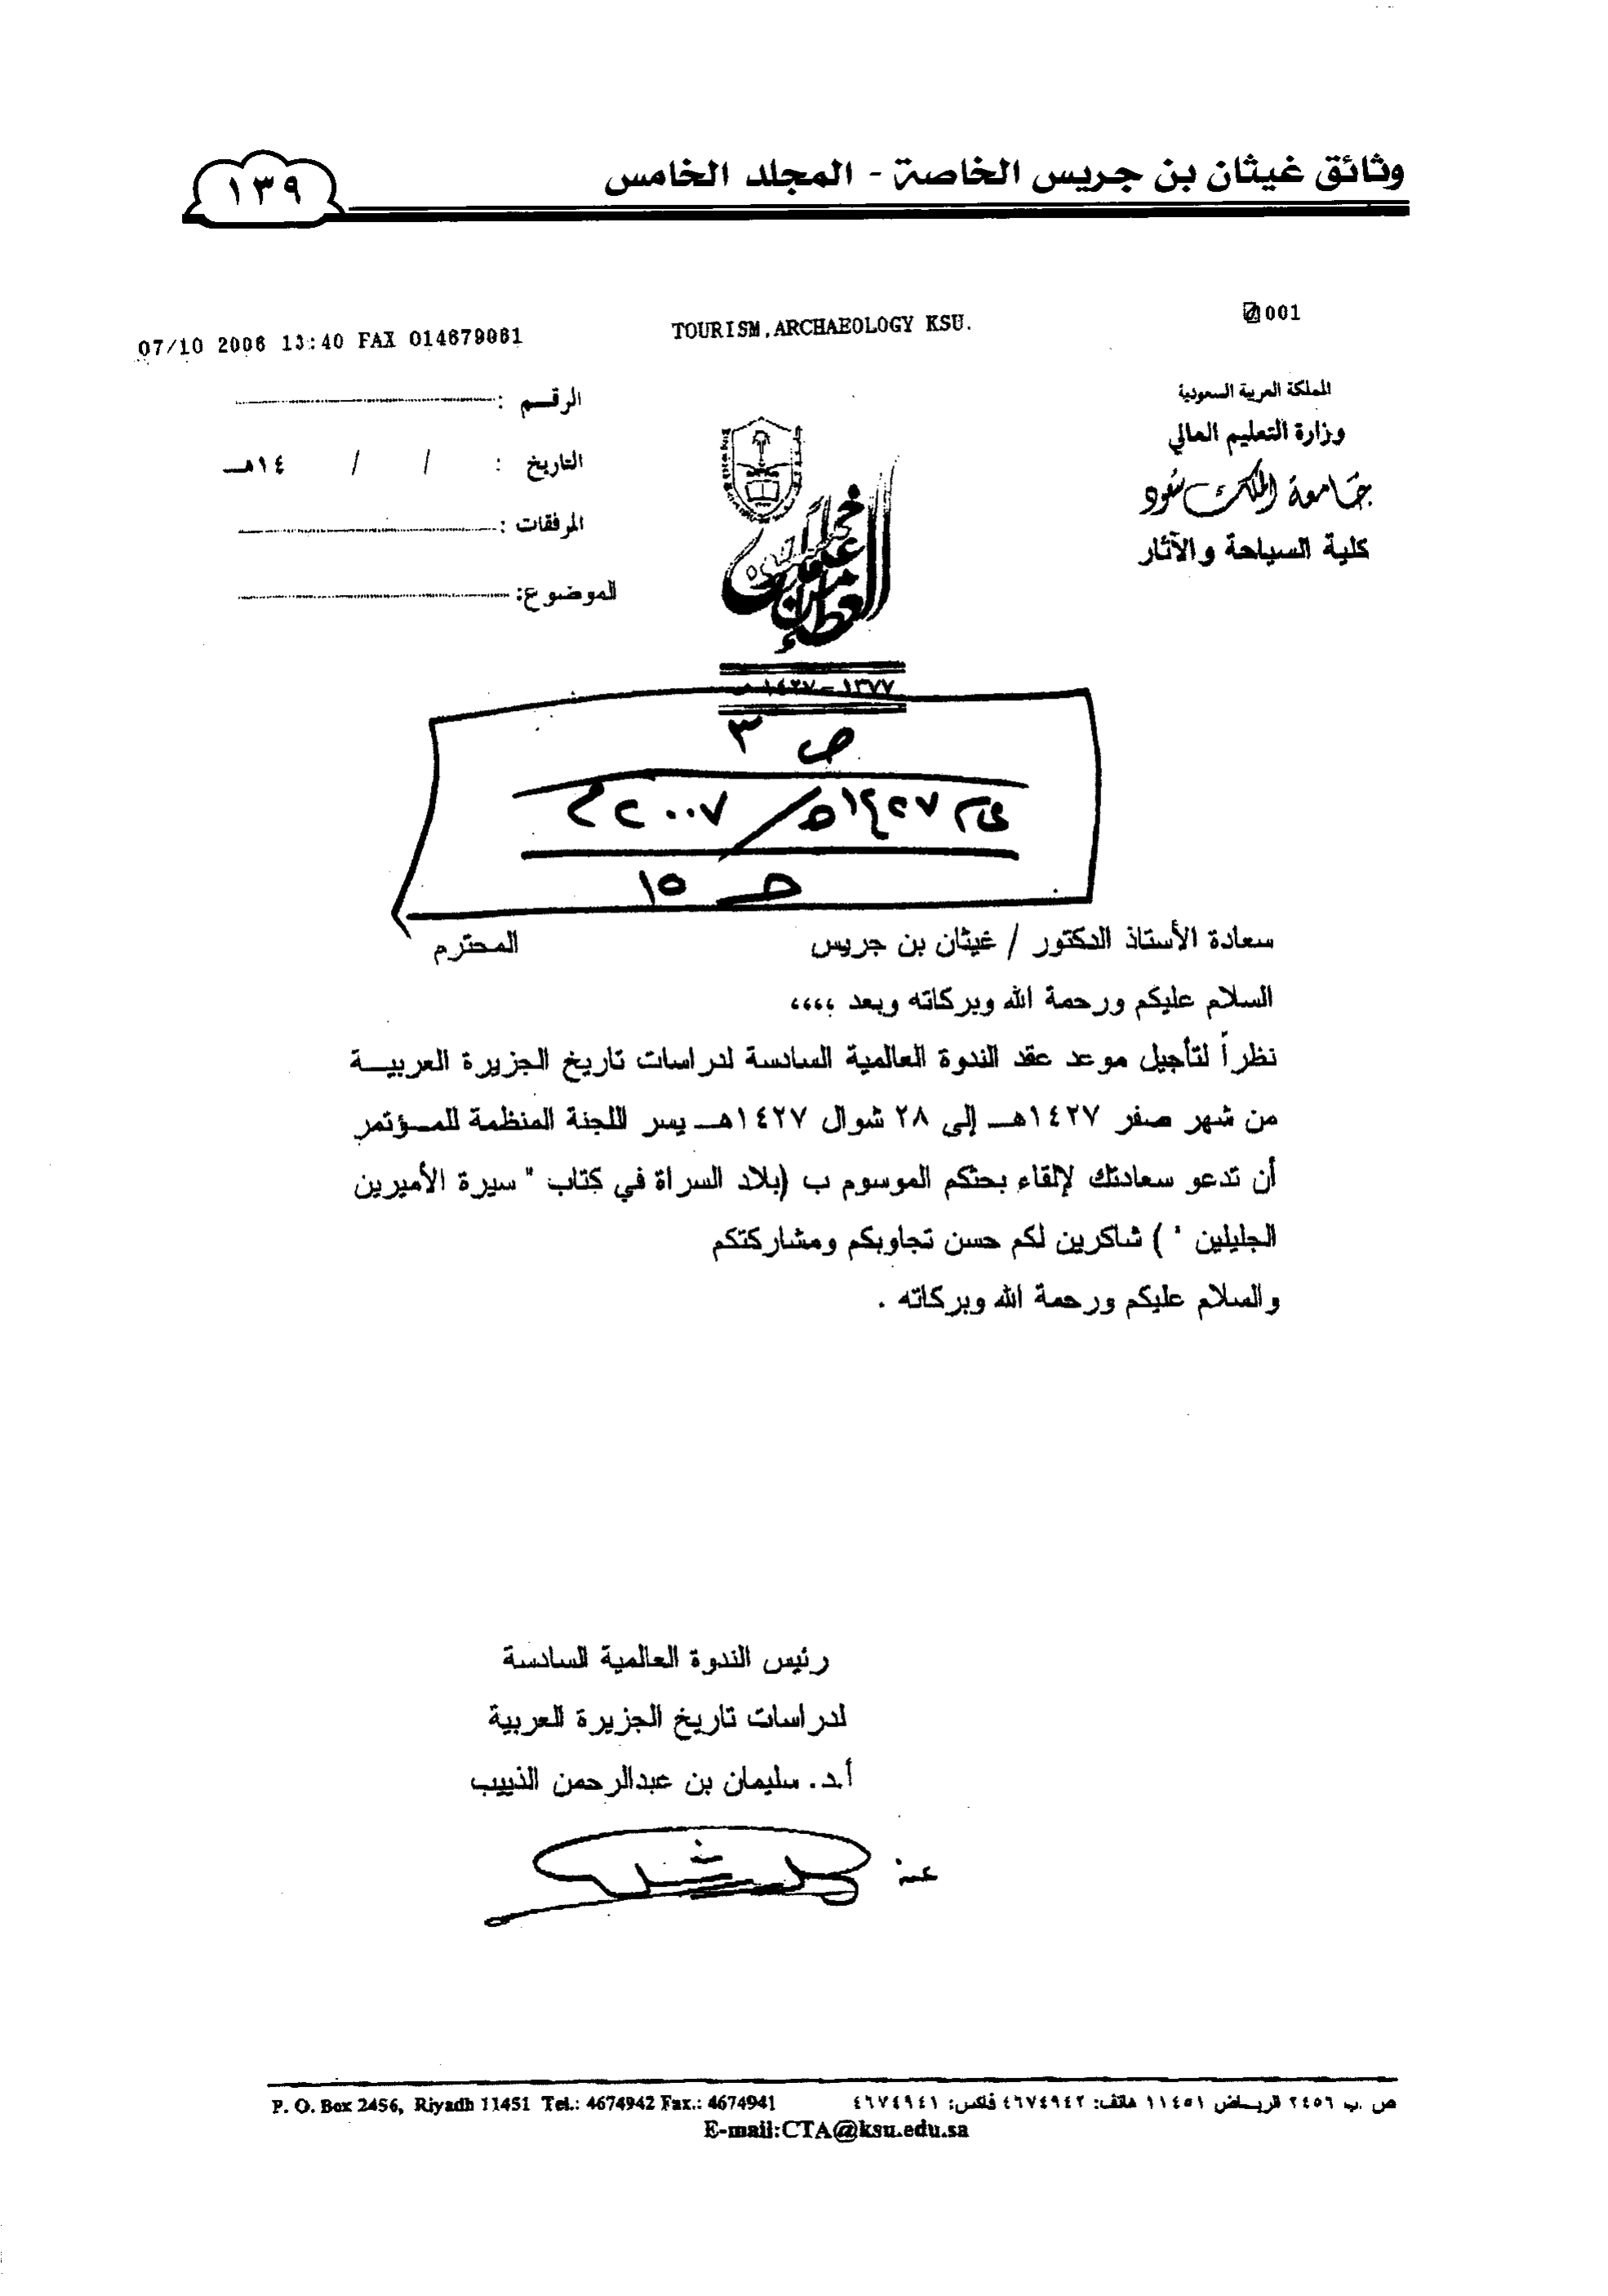 وثائق غيثان بن جريس الخاصة - المجلد الخامس
١٣٩
07/10 2006 13:40 FAX 014679061
TOURISM,ARCHAEOLOGY KSU.
001
المملكة العربية السعودية
وزارة التعليم العالي
جامعة الملك سعود
كلية السياحة والآثار
الرقم :
التاريخ : / / ١٤هـ
المرفقات :
الموضوع:
١٣٧٧ - ١٤٢٧هـ
ص ٣
١٤٢٧هـ / ٢٠٠٧م
حـ ١٥
سعادة الأستاذ الدكتور / غيثان بن جريس المحترم
السلام عليكم ورحمة الله وبركاته وبعد ،،،،
نظراً لتأجيل موعد عقد الندوة العالمية السادسة لدراسات تاريخ الجزيرة العربية
من شهر صفر ١٤٢٧هـ إلى ٢٨ شوال ١٤٢٧هـ يسر اللجنة المنظمة للمؤتمر
أن تدعو سعادتك لإلقاء بحثكم الموسوم ب (بلاد السراة في كتاب " سيرة الأميرين
الجليلين " ) شاكرين لكم حسن تجاوبكم ومشاركتكم
والسلام عليكم ورحمة الله وبركاته .
رئيس الندوة العالمية السادسة
لدراسات تاريخ الجزيرة العربية
أ.د. سليمان بن عبدالرحمن الذييب
عنه
ص .ب ٢٤٥٦ الرياض ١١٤٥١ هاتف: ٤٦٧٤٩٤٢ فاكس: ٤٦٧٤٩٤١
P. O. Box 2456, Riyadh 11451 Tel.: 4674942 Fax.: 4674941
E-mail:CTA@ksu.edu.sa